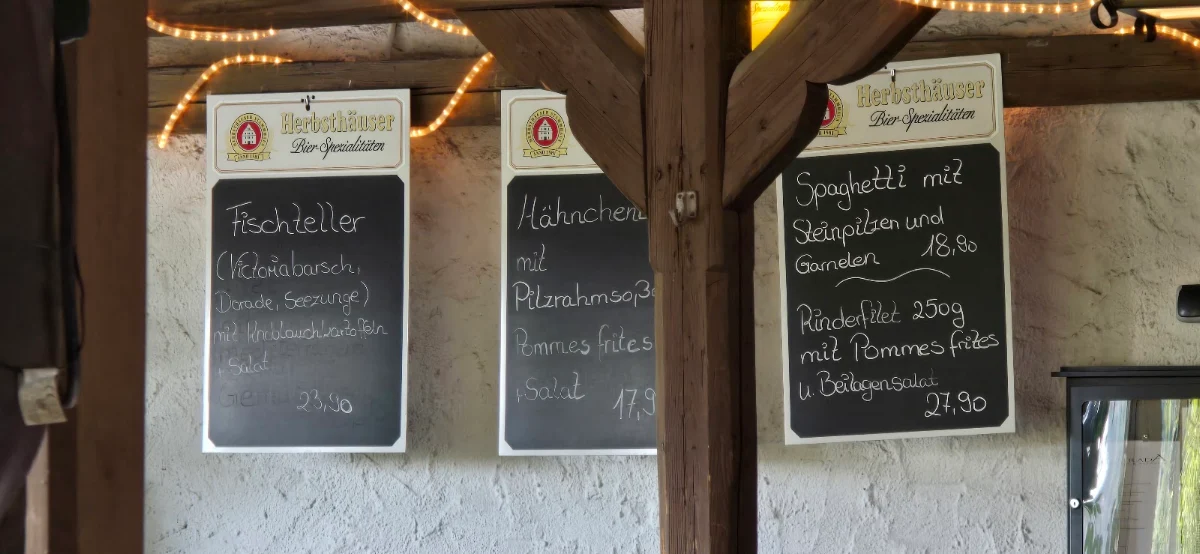 Herbsthäuser
Bier-Spezialitäten
Fischteller
(Victoriabarsch,
Dorade, Seezunge)
mit Knoblauchkartoffeln
+ Salat
23,90
Hähnchen
mit
Pilzrahmso
Pommes frites
+ Salat
17,9
Herbsthäuser
Bier-Spezialitäten
Spaghetti mit
Steinpilzen und
Garnelen 18,90
Rinderfilet 250g
mit Pommes frites
u. Beilagensalat
27,90